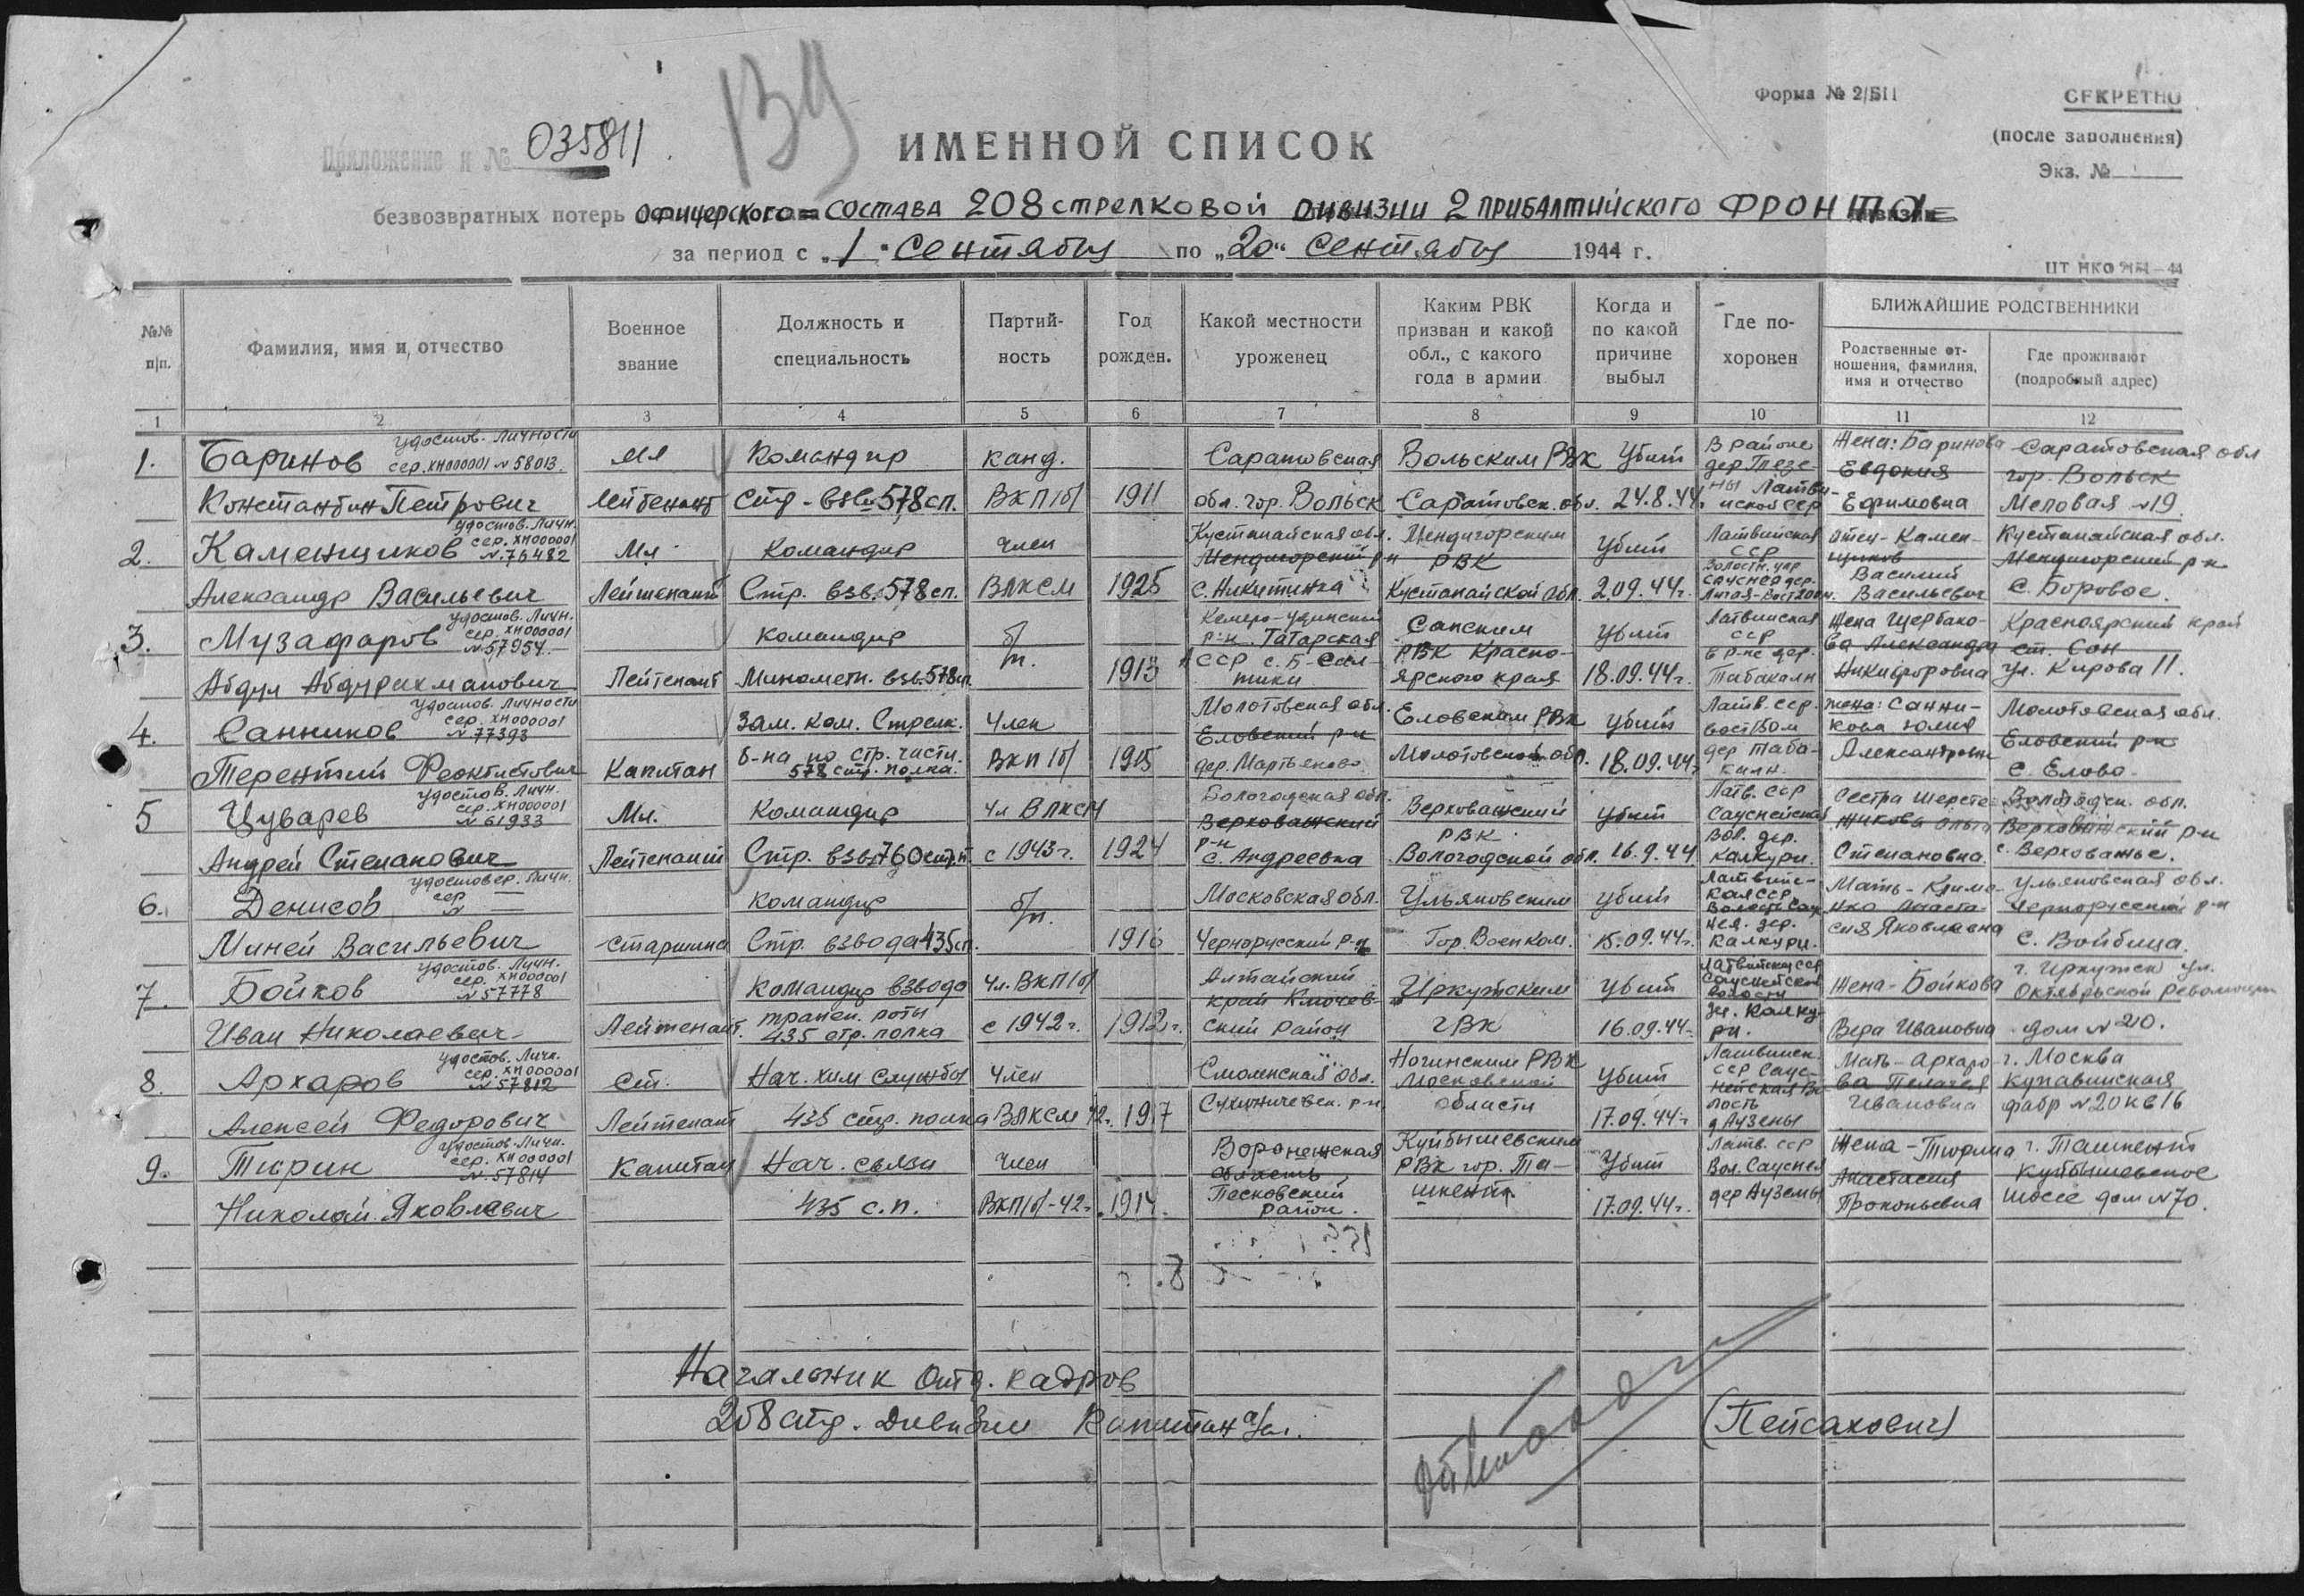 Форма № 2/БП
СЕКРЕТНО
(после заполнения)
Экз. №
Приложение к № 035811
139
ИМЕННОЙ СПИСОК
безвозвратных потерь офицерского состава 208 стрелковой дивизии 2 Прибалтийского фронта
за период с „1" Сентября по „20" Сентября 1944 г.
ЦТ НКО
№№ п/п.
Фамилия, имя и отчество
Военное звание
Должность и специальность
Партий-
ность
Год рожден.
Какой местности уроженец
Каким РВК
призван и какой
обл., с какого
года в армии
Когда и
по какой
причине
выбыл
Где по-
хоронен
БЛИЖАЙШИЕ РОДСТВЕННИКИ
Родственные от-
ношения, фамилия,
имя и отчество
Где проживают
(подробный адрес)
1 2 3 4 5 6 7 8 9 10 11 12
1. Баринов удостов. личности сер. ХН000001 № 58013
Константин Петрович
Мл Лейтенант
Командир стр. взв. 578 сп.
канд. ВКП/б/
1911
Саратовская обл. гор. Вольск
Вольским РВК Саратовск. обл.
Убит 24.8.44.
В районе дер. Латвийской ССР
Жена: Баринова Евдокия Ефимовна
Саратовская обл гор. Вольск Меловая №19.
2. Каменщиков удостов. личн. сер. ХН000001 №76482
Александр Васильевич
Мл. Лейтенант
Командир Стр. взв. 578 сп.
Член ВЛКСМ
1925
Кустанайская обл. Мендигорский р-н с. Никитинка
Мендигорским РВК Кустанайской обл.
Убит 2.09.44г.
Латвийская ССР
отец - Каменщиков Василий Васильевич
Кустанайская обл. Мендигорский р-н с. Боровое.
3. Музафаров удостов. личн. сер. ХН000001 №57954
Абдул Абдурахманович
Лейтенант
командир Минометн. взв. 578 сп.
б/п.
1913
Татарская АССР
Санским РВК Красноярского края
Убит 18.09.44г.
Латвийская ССР в р-не дер. Табакалн
Жена Щербакова Александра Никифоровна
Красноярский край ст. Сон ул. Кирова 11.
4. Санников удостов. личности сер. ХН000001 № 77393
Терентий Феоктистович
Капитан
Зам. ком. Стрелк. б-на по стр. части 578 стр. полка.
Член ВКП/б/
1905
Молотовская обл. Еловский р-н дер. Мартьяново
Еловским РВК Молотовской обл.
Убит 18.09.44г.
Латв. ССР дер Табакалн.
Жена: Санникова Юлия Александровна
Молотовская обл. Еловский р-н с. Елово.
5 Цуварев удостов. личн. сер. ХН000001 № 61933
Андрей Степанович
Мл. Лейтенант
Командир Стр. взв. 760 стр. п.
Чл ВЛКСМ с 1943г.
1924
Вологодская обл. Верховажский р-н с. Андреевка
Верховажский РВК Вологодской обл.
убит 16.9.44
Латв. ССР дер. Калкури.
Сестра Ольга Степановна.
Вологодск. обл. Верховажский р-н с. Верховажье.
6. Денисов удостовер. личн. сер — № —
Миней Васильевич
Старшина
командир Стр. взвода 435 сп.
б/п.
1916
Московская обл. Чернорусский р-н
Ульяновским Гор. Военком.
убит 15.09.44г.
Латвийская ССР дер. Калкури.
Мать - Климко Анастасия Яковлевна
Ульяновская обл. Чернорусский р-н с. Войбица.
7. Бойков удостов. личн. сер. ХН000001 №57778
Иван Николаевич
Лейтенант.
командир взвода 435 стр. полка
Чл. ВКП/б/ с 1942г.
1912г.
Алтайский край Ключевский район
Иркутским ГВК
убит 16.09.44г.
Латвийская ССР Сауснейской волости
Жена - Бойкова Вера Ивановна
г. Иркутск ул. Октябрьской Революции дом №20.
8. Архаров удостов. личн. сер. ХН000001 №57812
Алексей Федорович
Ст. Лейтенант
Нач. хим службы 435 стр. полка
Член ВЛКСМ 42г.
1917
Смоленская обл. Сухиничевск. р-н
Ногинским РВК Московской области
убит 17.09.44г.
Латвийск. ССР Сауснейская волость д Аузены
Мать - Архарова Пелагея Ивановна
г. Москва Купавинская фабр №20 кв 16
9. Тюрин удостов. личн. сер. ХН000001 №57814
Николай Яковлевич
Капитан
Нач. связи 435 с.п.
Член ВКП/б/-42г.
1914.
Воронежская область, Песковский район.
Куйбышевским РВК гор. Ташкента
Убит 17.09.44г.
Латв. ССР дер Аузены
Жена - Тюрина Анастасия Прокопьевна
г. Ташкент Куйбышевское шоссе дом №70.
Начальник отд. кадров
208 стр. Дивизии Капитан а/сл.
(Пейсахович)